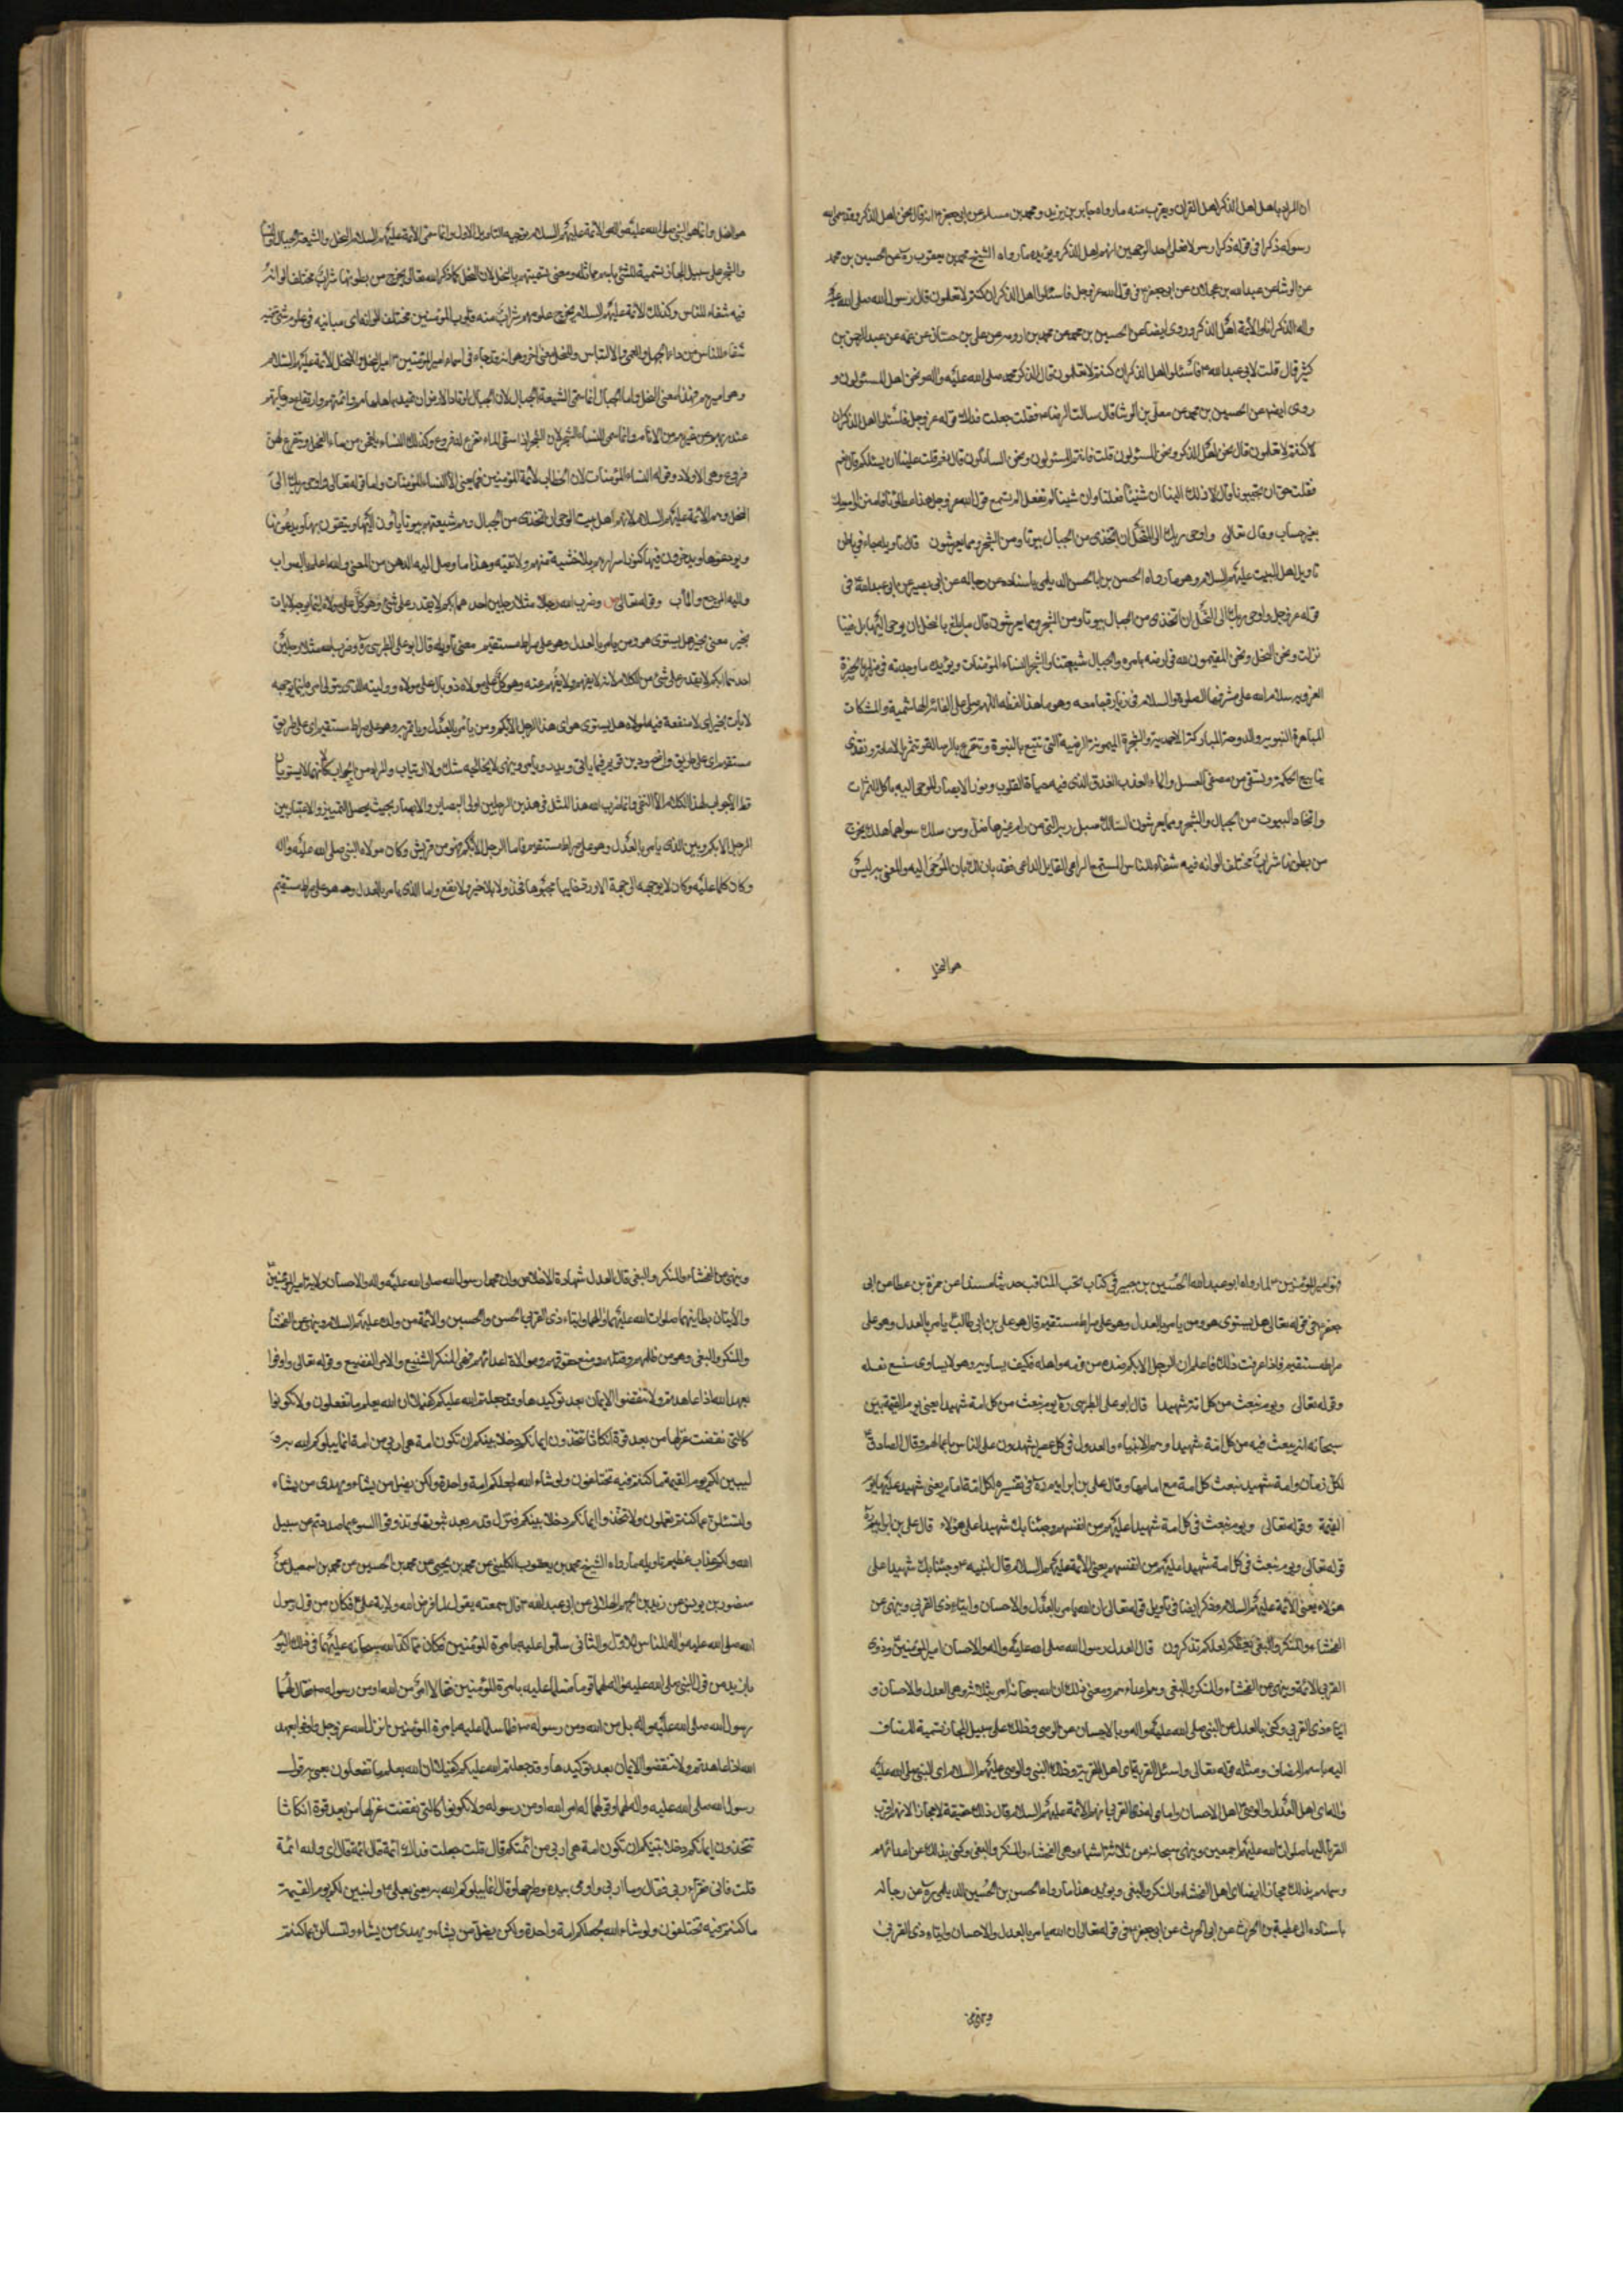 ان المراد باهل الذكر اهل القران ويقرب منه ما رواه جابر بن يزيد ومحمد بن مسلم عن ابي جعفر ع انه قال نحن اهل الذكر وقد سمى الله
رسوله ذكرا في قوله ذكرا رسولا فعلى احد الوجهين انهم اهل الذكر ويؤيده ما رواه الشيخ محمد بن يعقوب ره عن الحسين بن محمد
عن الوشا عن عبدالله بن عجلان عن ابي جعفر ع في قول الله عز وجل فاسئلوا اهل الذكر ان كنتم لا تعلمون قال رسول الله صلى الله عليه
واله الذكر انا والائمة اهل الذكر وروى ايضا عن الحسين بن محمد عن محمد بن اورمه عن علي بن حسان عن عمه عبد الرحمن بن
كثير قال قلت لابي عبدالله ع فاسئلوا اهل الذكر ان كنتم لا تعلمون قال الذكر محمد صلى الله عليه واله ونحن اهله المسئولون و
روى ايضا عن الحسين بن محمد عن معلى بن الوشا قال سالت الرضاء فقلت جعلت فداك قوله عز وجل فاسئلوا اهل الذكر ان
كنتم لا تعلمون قال نحن اهل الذكر ونحن المسئولون قلت فانتم المسئولون ونحن السائلون قال نعم قلت علينا ان نسئلكم قال نعم
فقلت حق ان تجيبونا قال لا ذلك الينا ان شئنا فعلنا وان شئنا لم نفعل الم تستمع قول الله عز وجل هذا عطاؤنا فامنن او امسك
بغير حساب وقال تعالى واوحى ربك الى النحل ان اتخذي من الجبال بيوتا ومن الشجر ومما يعرشون تاويله جاء في باطن
تاويل اهل البيت عليهم السلام وهو ما رواه الحسن بن ابي الحسن الديلمي باسناده عن رجاله عن ابي بصير عن ابي عبدالله ع في
قوله عز وجل واوحى ربك الى النحل ان اتخذي من الجبال بيوتا ومن الشجر ومما يعرشون قال ما بلغ بالنحل ان يوحى اليها بل فينا
نزلت ونحن النحل ونحن المقيمون لله في ارضه بامره والجبال شيعتنا والشجر النساء المؤمنات ويؤيده ما وجدته في مزار بالحضرة
الغروية سلام الله على مشرفها الصلوة والسلام في زيارة جامعه وهو ما هذا لفظه اللهم صل على الفئة الهاشمية والمشكاة
الباهرة النبوية والدوحة المباركة الاحمدية والشجرة الميمونة الرضية التي تنبع بالنبوة وتتفرع بالرسالة وتثمر بالامامة وتغذي
ينابيع الحكمة وتسقى من مصفى العسل والماء العذب الغدق الذي فيه حياة القلوب ونور الابصار الموحى اليه باكل الثمرات
واتخاذ البيوت من الجبال والشجر ومما يعرشون السالك سبل ربه التي من رام غيرها ضل ومن سلك سواها هلك يخرج
من بطونها شراب مختلف الوانه فيه شفاء للناس المستمع الواعي القايل الداعي فقد بان لك بان الموحى اليه والمعنى به ليس
هو النحل
هو النحل وانما هو النبي صلى الله عليه واله والائمة عليهم السلام توجيه التاويل الاول وانما سمى الائمة عليهم السلام النحل والشيعة الجبال والنساء
والشجر على سبيل المجاز تسمية للشئ باسم مماثله ومعنى تسميتهم بالنحل لان النحل كما ذكر الله تعالى يخرج من بطونها شراب مختلف الوانه
فيه شفاء للناس وكذلك الائمة عليهم السلام يخرج علومهم شراب منه قلوب المؤمنين مختلف الوانه اي مبانيه في علوم شتى فيه
شفاء للناس من داء الجهل والعمى والالتباس والنحل معنى اخر وهو انه قد جاء في اسماء امير المؤمنين ع امير النحل والنحل الائمة عليهم السلام
وهو اميرهم فهذا معنى النحل واما الجبال انما سمى الشيعة الجبال لان الجبال اوتاد الارض ان تميد باهلها
فروع وهي الاولاد وقوله النساء المؤمنات لان الخطاب لائمة المؤمنين فما يعنى الا النساء المؤمنات واما قوله تعالى واوحى ربك الى
النحل وهم الائمة عليهم السلام لانهم اهل بيت الوحي ان اتخذي من الجبال وهم شيعتهم بيوتا ياوون اليها ويتقون بها ويدعونها
ويودعوها ويدخرون فيها مكنون اسرارهم بلا خشية منهم ولا تقيه وهذا ما وصل اليه الذهن من المعنى والله اعلم بالصواب
واليه المرجع والمأب وقوله تعالى وضرب الله مثلا رجلين احدهما ابكم لا يقدر على شئ وهو كل على مولاه اينما يوجهه لا يات
بخير هل يستوي هو ومن يامر بالعدل وهو على صراط مستقيم معنى تأويله قال ابو علي الطبرسي ره وضرب الله مثلا رجلين
احدهما ابكم لا يقدر على شئ من الكلام لانه لا يفهم ولا يفهم عنه وهو كل على مولاه ذو وبال على مولاه ووليه الذي يتولى امره اينما يوجهه
لا يأت بخير اي لا منفعة فيه لمولاه هل يستوي هو اي هذا الرجل الابكم ومن يأمر بالعدل ويأتمر به وهو على صراط مستقيم اي على طريق
مستقيم اي على طريق واضح ودين قويم فيما ياتي ويذر ويأمر وينهى لا يخالجه شك ولا ارتياب والمراد من الجواب كأنهما لا يستويان
قط لا جواب لهذا الكلام الا النفي وانما ضرب الله هذا المثل في هذين الرجلين اولى البصاير والابصار بحيث يحصل التمييز والاعتبار بين
الرجل الابكم وبين الذي يامر بالعدل وهو على صراط مستقيم فاما الرجل الابكم فهو من قريش وكان مولاه النبي صلى الله عليه واله
فهو امير المؤمنين ع لما رواه ابو عبد الله الحسين بن جبير في كتاب نخب المناقب حديثا مسندا عن حمزة بن عطا عن ابي
جعفر ع في قوله تعالى هل يستوي هو ومن يامر بالعدل وهو على صراط مستقيم قال هو علي بن ابي طالب ع يامر بالعدل وهو على
صراط مستقيم فاذا عرفت ذلك فاعلم ان الرجل الابكم ضده من قومه واهله فكيف يساويه وهو لا يساوي شسع نعله
وقوله تعالى ويوم نبعث من كل امة شهيدا قال ابو علي الطبرسي ره يوم نبعث من كل امة شهيدا يعني يوم القيمة بين
سبحانه انه يبعث فيه من كل امة شهيدا وهم الانبياء والعدول في كل عصر يشهدون على الناس باعمالهم وقال الصادق ع
لكل زمان وامة شهيد تبعث كل امة مع امامها وقال علي بن ابراهيم ره في تفسيره لكل امة امام يعني شهيد عليها يوم
القيمة وقوله تعالى ويوم نبعث في كل امة شهيدا عليهم من انفسهم وجئنا بك شهيدا على هؤلاء قال علي بن ابراهيم ره
قوله تعالى ويوم نبعث في كل امة شهيدا عليهم من انفسهم يعني الائمة عليهم السلام قال لنبيه ص وجئنا بك شهيدا على
هؤلاء يعني الائمة عليهم السلام وذكر ايضا في تأويل قوله تعالى ان الله يامر بالعدل والاحسان وايتاء ذي القربى وينهى عن
الفحشاء والمنكر والبغي يعظكم لعلكم تذكرون قال العدل رسول الله صلى الله عليه واله والاحسان امير المؤمنين ع وذوي
القربى الائمة وينهى عن الفحشاء والمنكر والبغي وهو اعداءهم ومعنى ذلك ان الله سبحانه امر بثلاثة وهي العدل والاحسان و
ايتاء ذي القربى وكنى بالعدل عن النبي صلى الله عليه واله وبالاحسان عن الوصي وذلك على سبيل المجاز تسمية للمضاف
اليه باسم المضاف ومثله قوله تعالى واسئل القرية اي اهل القرية وكذلك النبي والوصي عليهم السلام اي النبي صلى الله عليه
واله اي اهل العدل والوصي اهل الاحسان واما ايتاء ذي القربى فانهم الائمة عليهم السلام قال ذلك حقيقة لا مجازا لانهم اقرب
القربى اليهما صلوات الله عليهم اجمعين وينهى سبحانه عن ثلاثة اشياء وهي الفحشاء والمنكر والبغي وكنى بذلك عن اعدائهم
وسماهم بذلك مجازا ايضا اي اهل الفحشاء والمنكر والبغي ويؤيد هذا ما رواه الحسن بن ابي الحسن الديلمي ره عن رجاله
باسناده الى عطية بن الحرث عن ابي جعفر ع في قوله تعالى ان الله يامر بالعدل والاحسان وايتاء ذي القربى
وينهى عن
وينهى عن الفحشاء والمنكر والبغي قال العدل شهادة الاخلاص وان محمدا رسول الله صلى الله عليه واله والاحسان ولاية امير المؤمنين ع
والاتيان بطاعتهما صلوات الله عليهما والهما وايتاء ذي القربى الحسن والحسين والائمة من ولده عليهم السلام وينهى عن الفحشاء
والمنكر والبغي وهو من ظلمهم وقتلهم ومنع حقوقهم وموالاة اعدائهم فهي المنكر الشنيع والامر الفضيع وقوله تعالى واوفوا
بعهد الله اذا عاهدتم ولا تنقضوا الايمان بعد توكيدها وقد جعلتم الله عليكم كفيلا ان الله يعلم ما تفعلون ولا تكونوا
كالتي نقضت غزلها من بعد قوة انكاثا تتخذون ايمانكم دخلا بينكم ان تكون امة هي اربى من امة انما يبلوكم الله به و
ليبين لكم يوم القيمة ما كنتم فيه تختلفون ولو شاء الله لجعلكم امة واحدة ولكن يضل من يشاء ويهدي من يشاء
ولتسئلن عما كنتم تعملون ولا تتخذوا ايمانكم دخلا بينكم فتزل قدم بعد ثبوتها وتذوقوا السوء بما صددتم عن سبيل
الله ولكم عذاب عظيم تاويله ما رواه الشيخ محمد بن يعقوب الكليني عن محمد بن يحيى عن محمد بن الحسين عن محمد بن اسمعيل عن
منصور بن يونس عن زيد بن الجهم الهلالي عن ابي عبدالله ع قال سمعته يقول لما فرض الله ولاية علي ع فكان من قول رسول
الله صلى الله عليه واله للناس الاول والثاني سلموا عليه بامرة المؤمنين فكان مما اكد الله سبحانه عليهما في ذلك اليوم
يا زيد من قول النبي صلى الله عليه واله لهما قوما فسلما عليه بامرة المؤمنين فقالا امر من الله او من رسوله ص فقال لهما
رسول الله صلى الله عليه واله بل من الله ومن رسوله ص فلما سلما عليه بامرة المؤمنين انزل الله عز وجل واوفوا بعهد
الله اذا عاهدتم ولا تنقضوا الايمان بعد توكيدها وقد جعلتم الله عليكم كفيلا ان الله يعلم ما تفعلون يعني به قول
رسول الله صلى الله عليه واله لهما وقولهما له امر الله او من رسوله ولا تكونوا كالتي نقضت غزلها من بعد قوة انكاثا
تتخذون ايمانكم دخلا بينكم ان تكون امة هي اربى من ائمتكم قال قلت جعلت فداك ائمة قال ائمة قال اي والله ائمة
قلت فانى نقراء اربى فقال وما اربى واومى بيده وطرحها وقال انما يبلوكم الله به يعني بعلي ع وليبين لكم يوم القيمة
ما كنتم فيه تختلفون ولو شاء الله لجعلكم امة واحدة ولكن يضل من يشاء ويهدي من يشاء ولتسألن عما كنتم